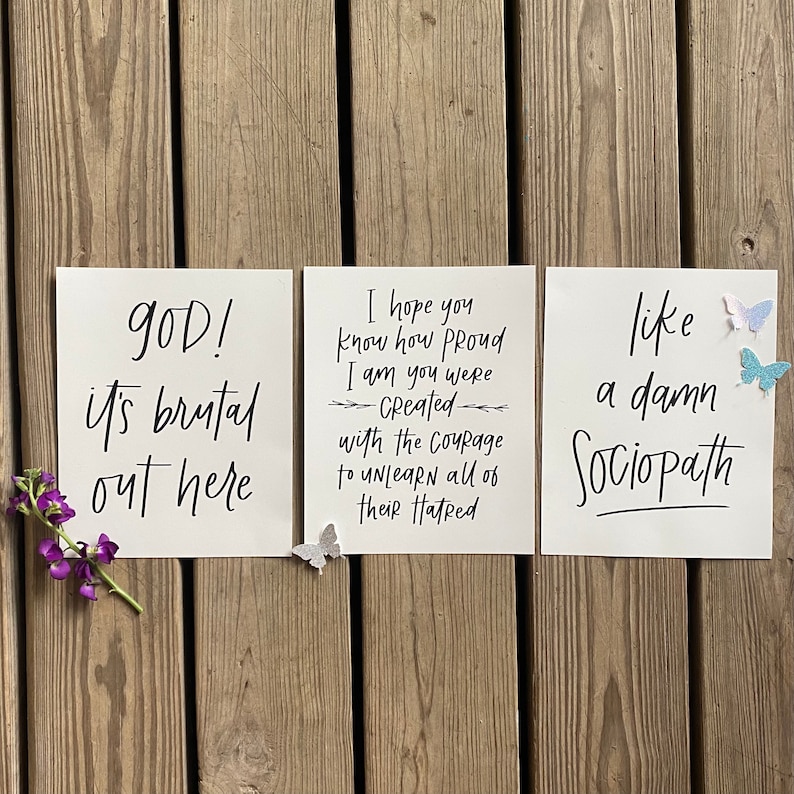 god!
it's brutal
out here
I hope you
know how proud
I am you were
created
with the courage
to unlearn all of
their hatred
like
a damn
sociopath